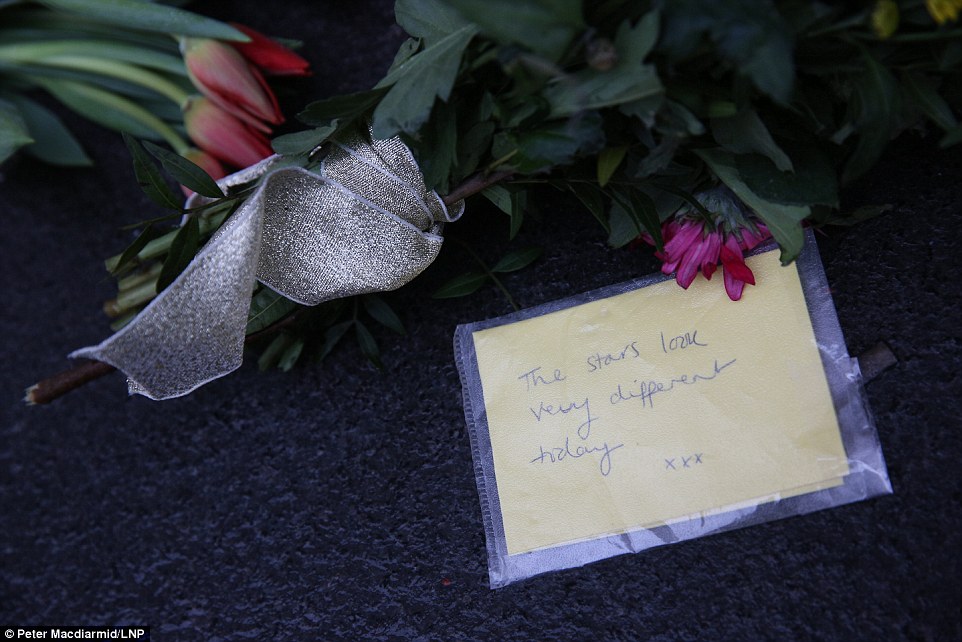 The stars look
very different
today
xxx
© Peter Macdiarmid/LNP